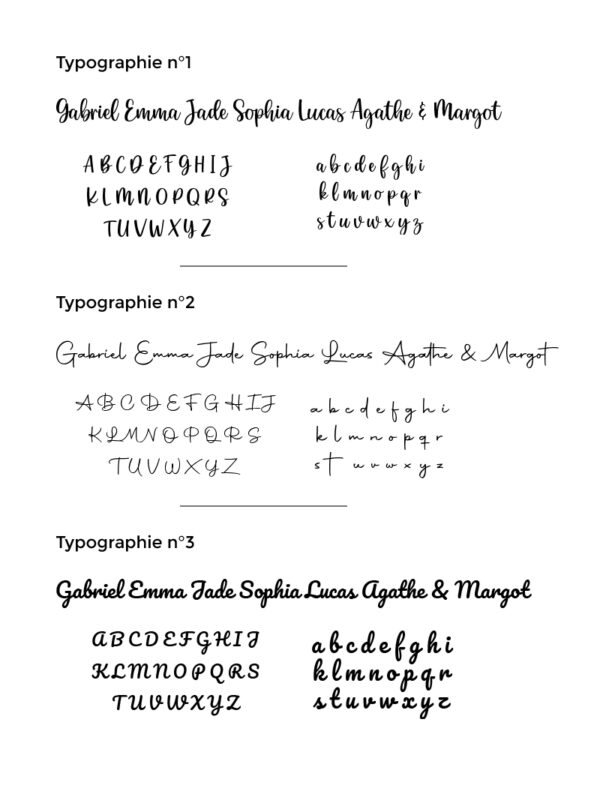 Typographie n°1
Gabriel Emma Jade Sophia Lucas Agathe & Margot
A B C D E F G H I J
K L M N O P Q R S
T U V W X Y Z
a b c d e f g h i
k l m n o p q r
s t u v w x y z
Typographie n°2
Gabriel Emma Jade Sophia Lucas Agathe & Margot
A B C D E F G H I J
K L M N O P Q R S
T U V W X Y Z
a b c d e f g h i
k l m n o p q r
s t u v w x y z
Typographie n°3
Gabriel Emma Jade Sophia Lucas Agathe & Margot
A B C D E F G H I J
K L M N O P Q R S
T U V W X Y Z
a b c d e f g h i
k l m n o p q r
s t u v w x y z